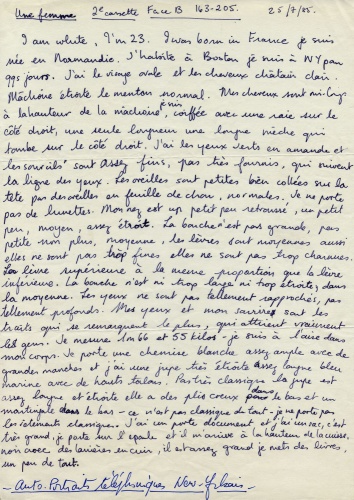 Une femme 2e cassette Face B 163-205. 25/7/85.
I am white, I'm 23. I was born in France je suis
née en Normandie. J'habite à Boston je suis à NY pour
qqs jours. J'ai le visage ovale et les cheveux châtain clair.
Mâchoire étroite le menton normal. Mes cheveux sont mi-longs
à la hauteur de la mâchoire, je suis coiffée avec une raie sur le
côté droit, une seule longueur une longue mèche qui
tombe sur le côté droit. J'ai les yeux verts en amande et
les sourcils sont assez fins, pas très fournis, qui suivent
la ligne des yeux. Les oreilles sont petites bien collées sur la
tête pas des oreilles en feuille de chou, normales. Je ne porte
pas de lunettes. Mon nez est un petit peu retroussé, un petit
peu, moyen, assez étroit. La bouche n'est pas grande, pas
petite non plus, moyenne, les lèvres sont moyennes aussi
elles ne sont pas trop fines elles ne sont pas trop charnues.
La lèvre supérieure a la même proportion que la lèvre
inférieure. La bouche n'est ni trop large ni trop étroite, dans
la moyenne. Les yeux ne sont pas tellement rapprochés, pas
tellement profonds. Mes yeux et mon sourire sont les
traits qui se remarquent le plus, qui attirent vraiment
les gens. Je mesure 1m66 et 55 kilos - je suis à l'aise dans
mon corps. Je porte une chemise blanche assez ample avec de
grandes manches et j'ai une jupe très étroite assez longue bleu
marine avec de hauts talons. Pas très classique la jupe est
assez longue et étroite elle a des plis creux dans le bas et un
martingale dans le bas - ce n'est pas classique du tout - je ne porte pas
les vêtements classiques. J'ai un porte document et j'ai un sac, c'est
très grand, je porte sur l'épaule et il m'arrive à la hauteur de la cuisse,
noir avec des lanières en cuir, il est assez grand je mets des livres,
un peu de tout.
- Auto-Portraits téléphoniques New-Yorkais -